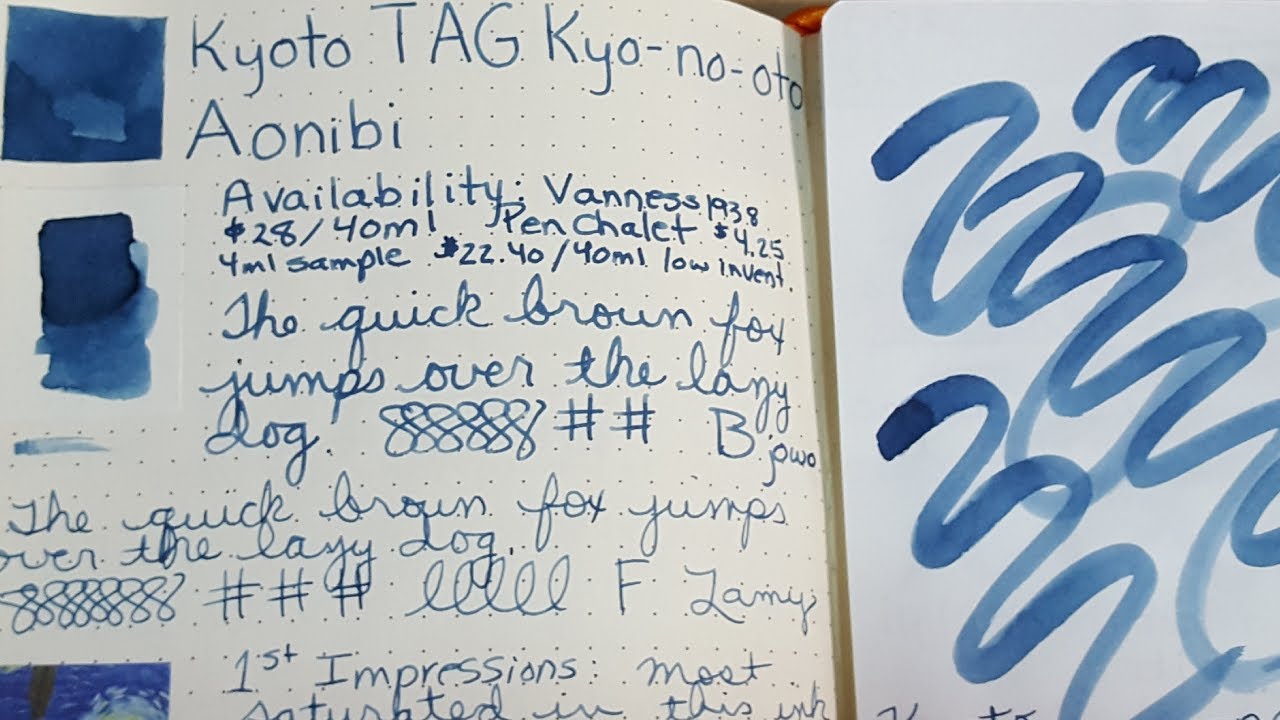 Kyoto TAG Kyo-no-oto
Aonibi
Availability: Vanness1938
$28/40ml Pen Chalet $4.25
4ml sample $22.40/40ml low invent.
The quick broun fox
jumps over the lazy
dog. ## B jowo
The quick broun fox jumps
over the lazy dog.
### lllll F Lamy
1st Impressions: most
saturated in this ink